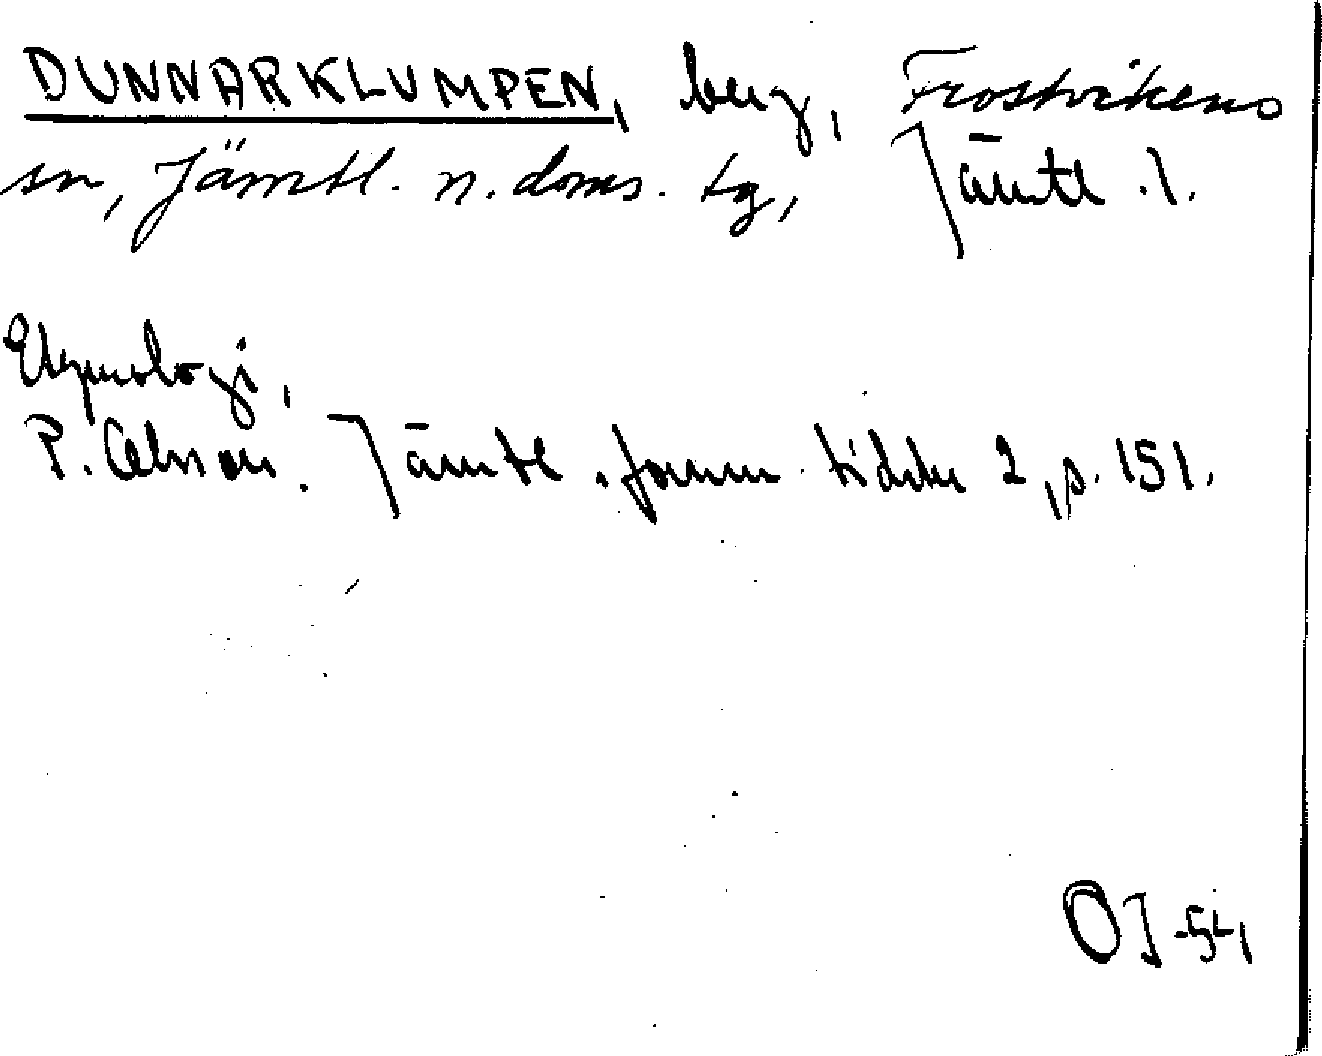 DUNNARKLUMPEN, berg, Frostvikens
sn, Jämtl. n. doms. tg, Jämtl. l.
Etymologi,
P. Olsson. Jämtl. fornm. tidskr 2, p. 151.
OJ -54